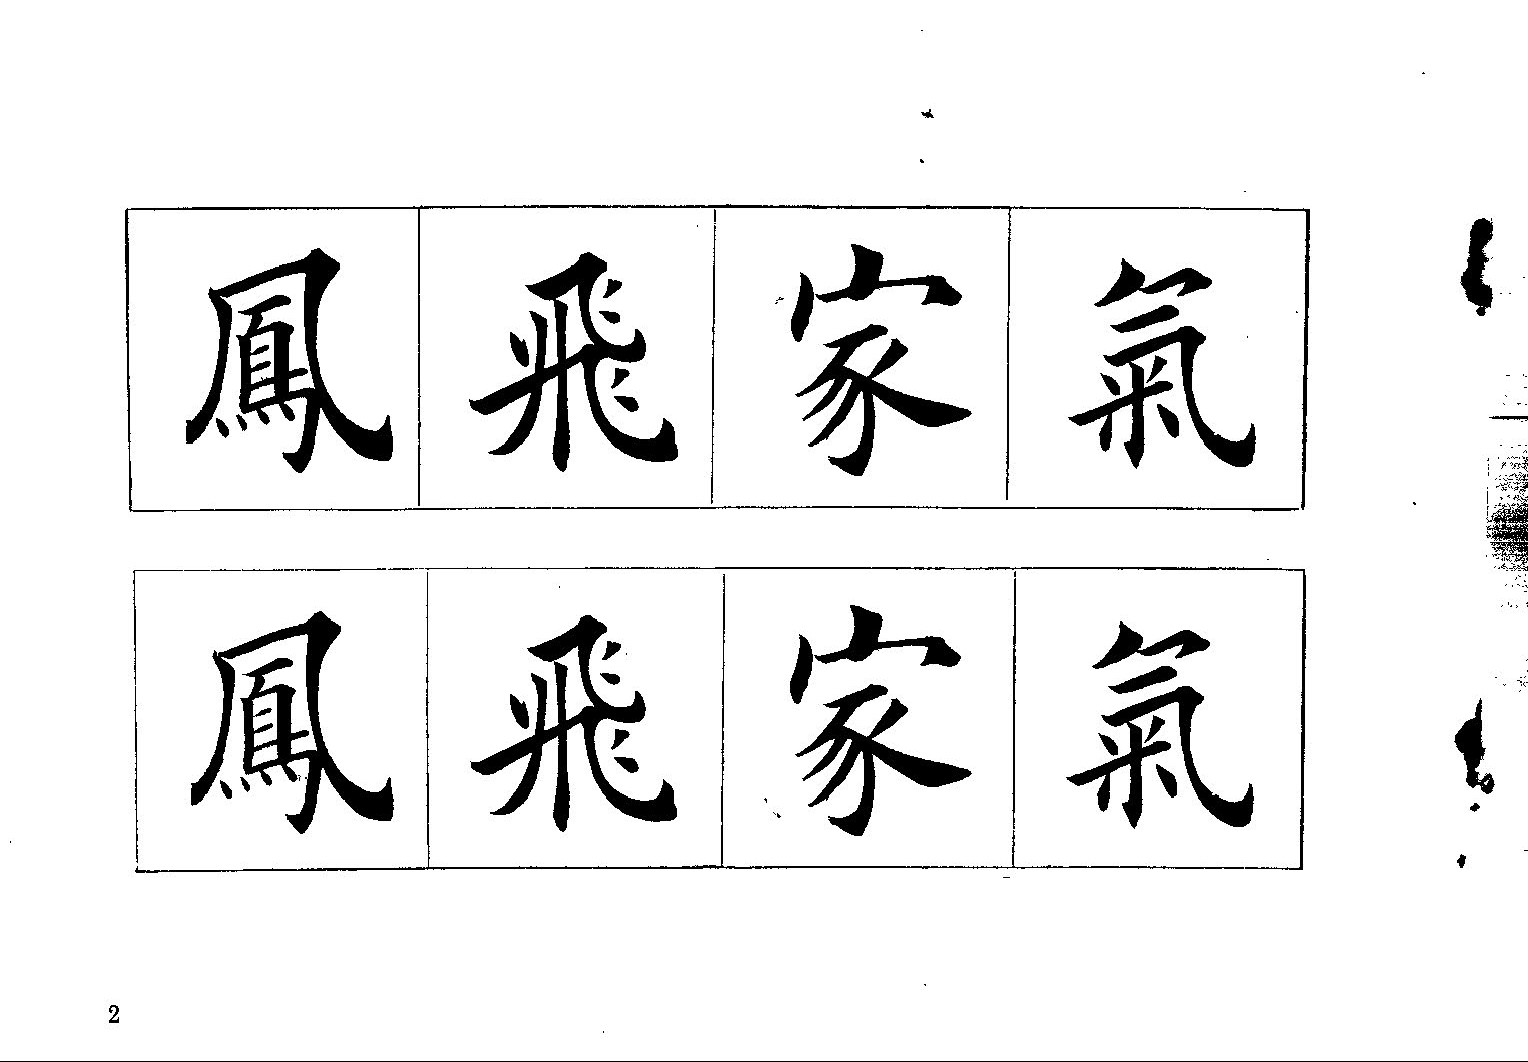 鳳飛家氣
鳳飛家氣
2